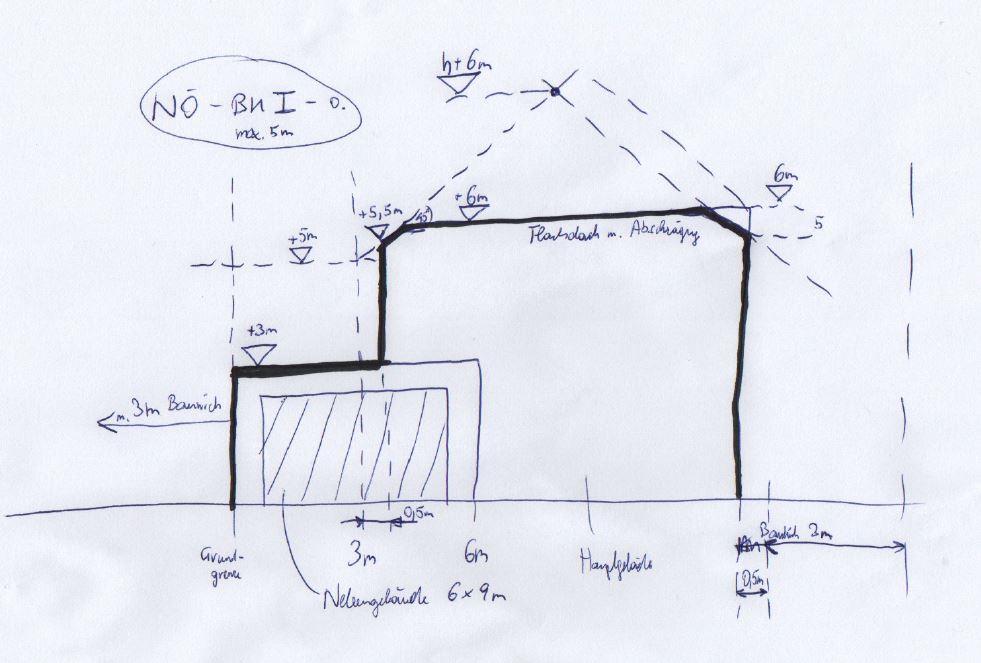 h+6m
NÖ - BK I - o.
max. 5m
6m
+5,5m
45°
+6m
5
+5m
Flachdach m. Abschrägung
+3m
m. 3m Bauwich
0,5m
Bauwich 3m
Grund-
grenze
3m
6m
Hauptgebäude
0,5m
Nebengebäude 6 x 9m